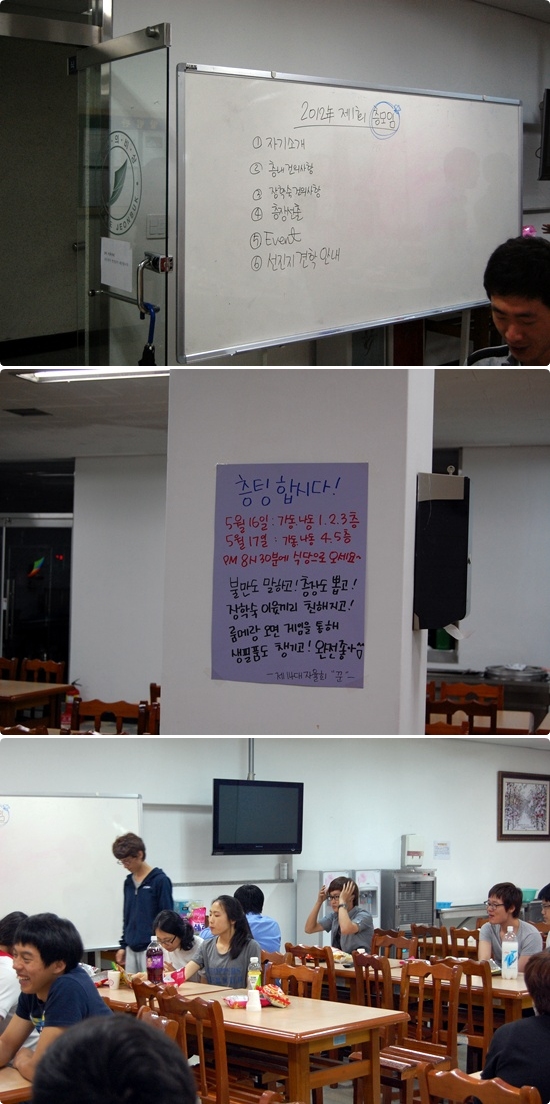 2012年 제1회 층모임
① 자기소개
② 층내 건의사항
③ 장학숙 건의사항
④ 층장선출
⑤ Event
⑥ 선진지 견학 안내
JEONBUK
층팅 합시다!
5월 16일 : 가동, 나동 1. 2. 3층
5월 17일 : 가동, 나동 4. 5층
PM 8시 30분에 식당으로 오세요~
불만도 말하고! 층장도 뽑고!
장학숙 이웃끼리 친해지고!
룸메랑 오면 게임을 통해
생필품도 챙기고! 완전좋아^^
-제14대 자율회 "꿈"-